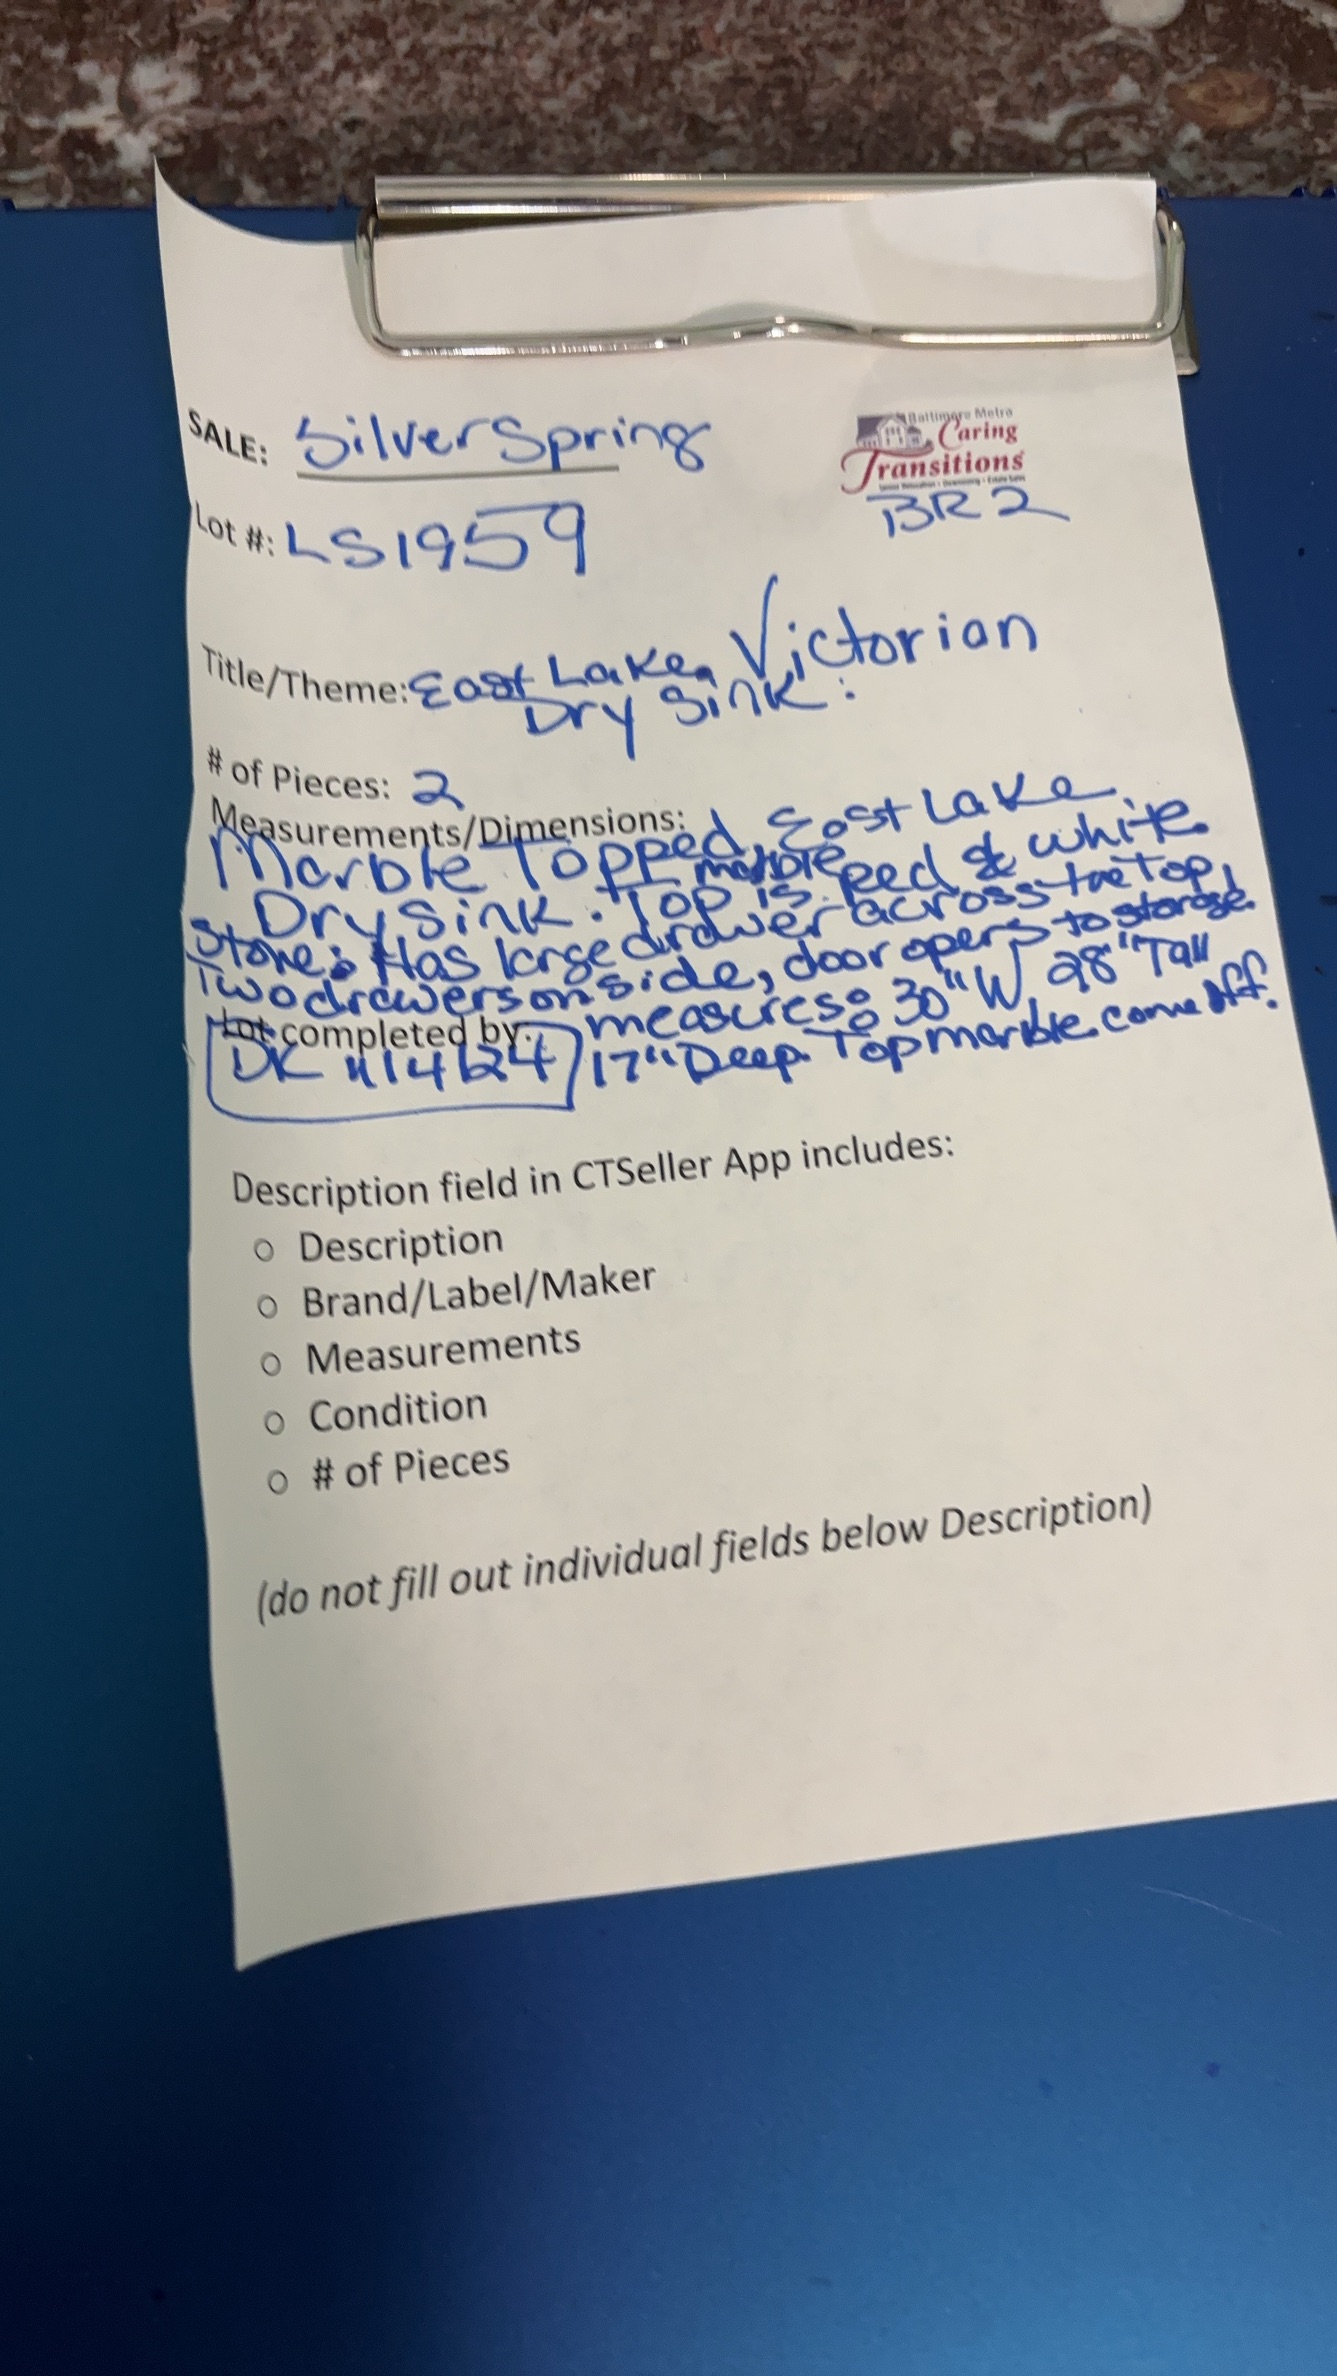 Baltimore Metro
Caring
Transitions
SALE: Silver Spring
BR2
Lot #: LS1959
Title/Theme: East Lake, Victorian
Dry Sink:
# of Pieces: 2
Measurements/Dimensions:
Marble Topped East Lake
Dry Sink. Top is marble Red & white
Stone: Has large drawer across the Top,
Two drawers on side, door opens to storage
measures: 30" W, 28" Tall
17" Deep. Top marble come off.
Lot completed by:
DK 11/4/24
Description field in CTSeller App includes:
○ Description
○ Brand/Label/Maker
○ Measurements
○ Condition
○ # of Pieces
(do not fill out individual fields below Description)